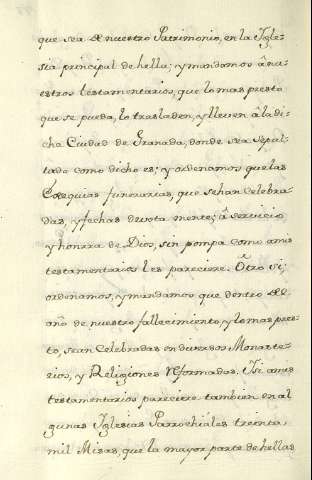 que sea de nuestro Patrimonio, en la Igle-
sia principal de hella; y mandamos â nu-
estros testamentarios, que lo mas presto
que se pueda, lo trasladen, y lleven â la di-
cha Ciudad de Granada, donde sea sepul-
tado como dicho es; y ordenamos que las
Exequias funerarias, que se han Celebra-
das, y fechas devota mente; â servicio
y honrra de Dios, sin pompa como a mis
testamentarios les pareciere. Otro si;
ordenamos, y mandamos que dentro de
año de nuestro fallecimiento y lo mas pres-
to, sean Celebradas en diversos Monaste-
rios, y Religiones reformadas. Y si a mis
testamentarios pareciere tambien en al
gunas Iglesias Parrochiales treinta
mil Misas, que la mayor parte de hellas